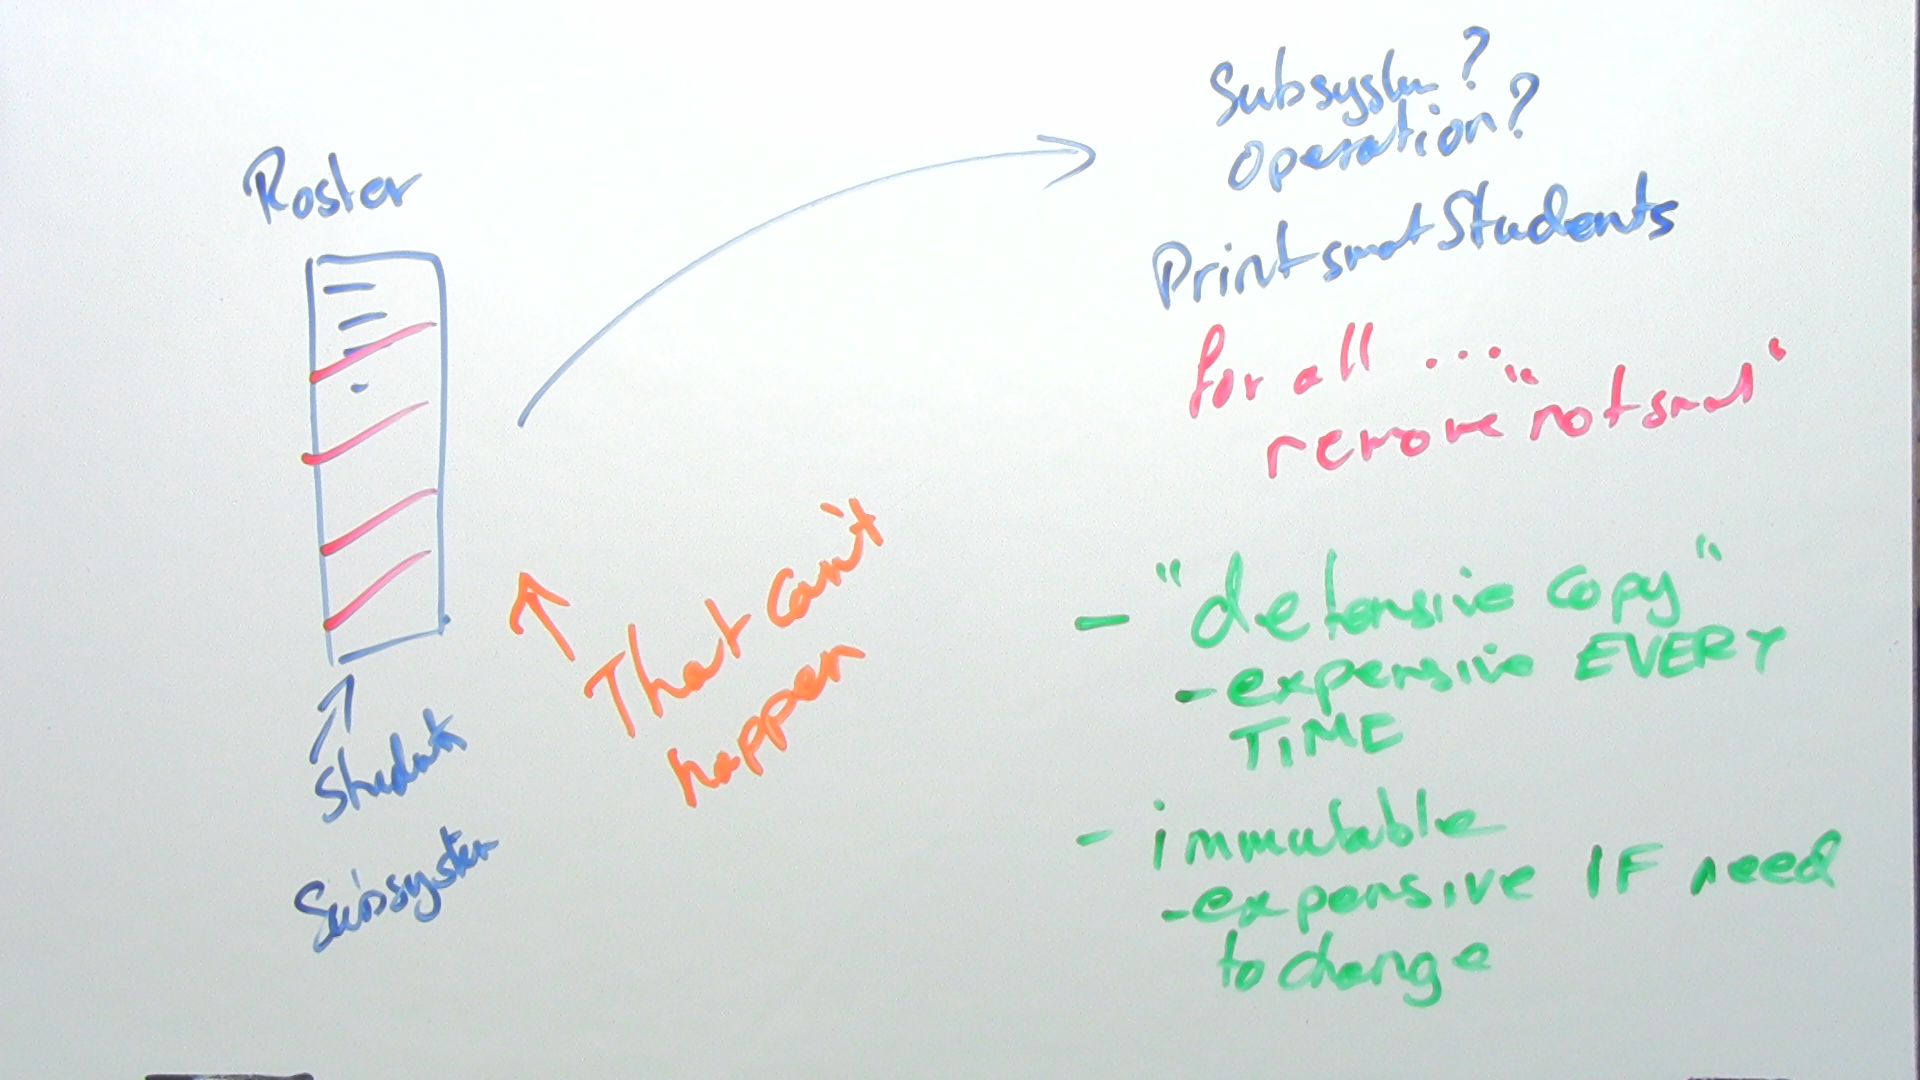 Roster
Students
Subsystem
That can't
happen
Subsystem?
Operation?
Print smart Students
for all ...
remove "not smart"
- "defensive copy"
- expensive EVERY
TIME
- immutable
- expensive IF need
to change